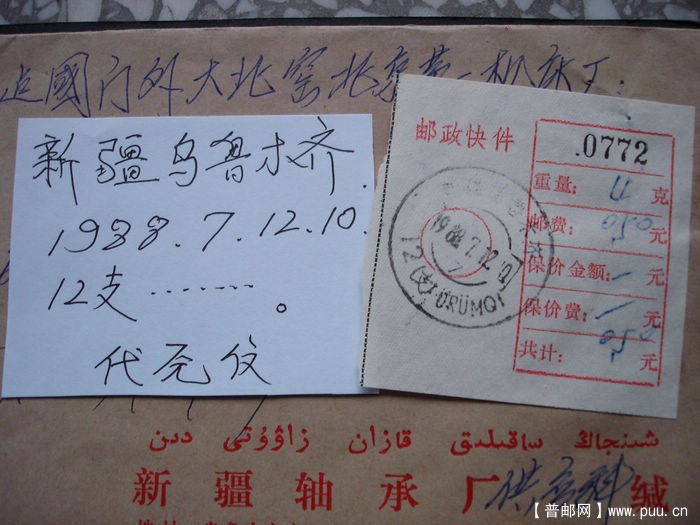 國门外大北窑北京第一机床厂:
新疆乌鲁木齐.
1988.7.12.10
12支 ......。
代充伩
邮政快件
.0772
重量: 4 克
邮费: 050 元
保价金额: 元
保价费: 元
共计: 050 元
1988.7.12.10
12(支)
ÜRÜMQI
شىنجاڭ ساقىلىق قازان زاۋۇتى دىن
新疆轴承厂供应科缄
【普邮网】www.puu.cn